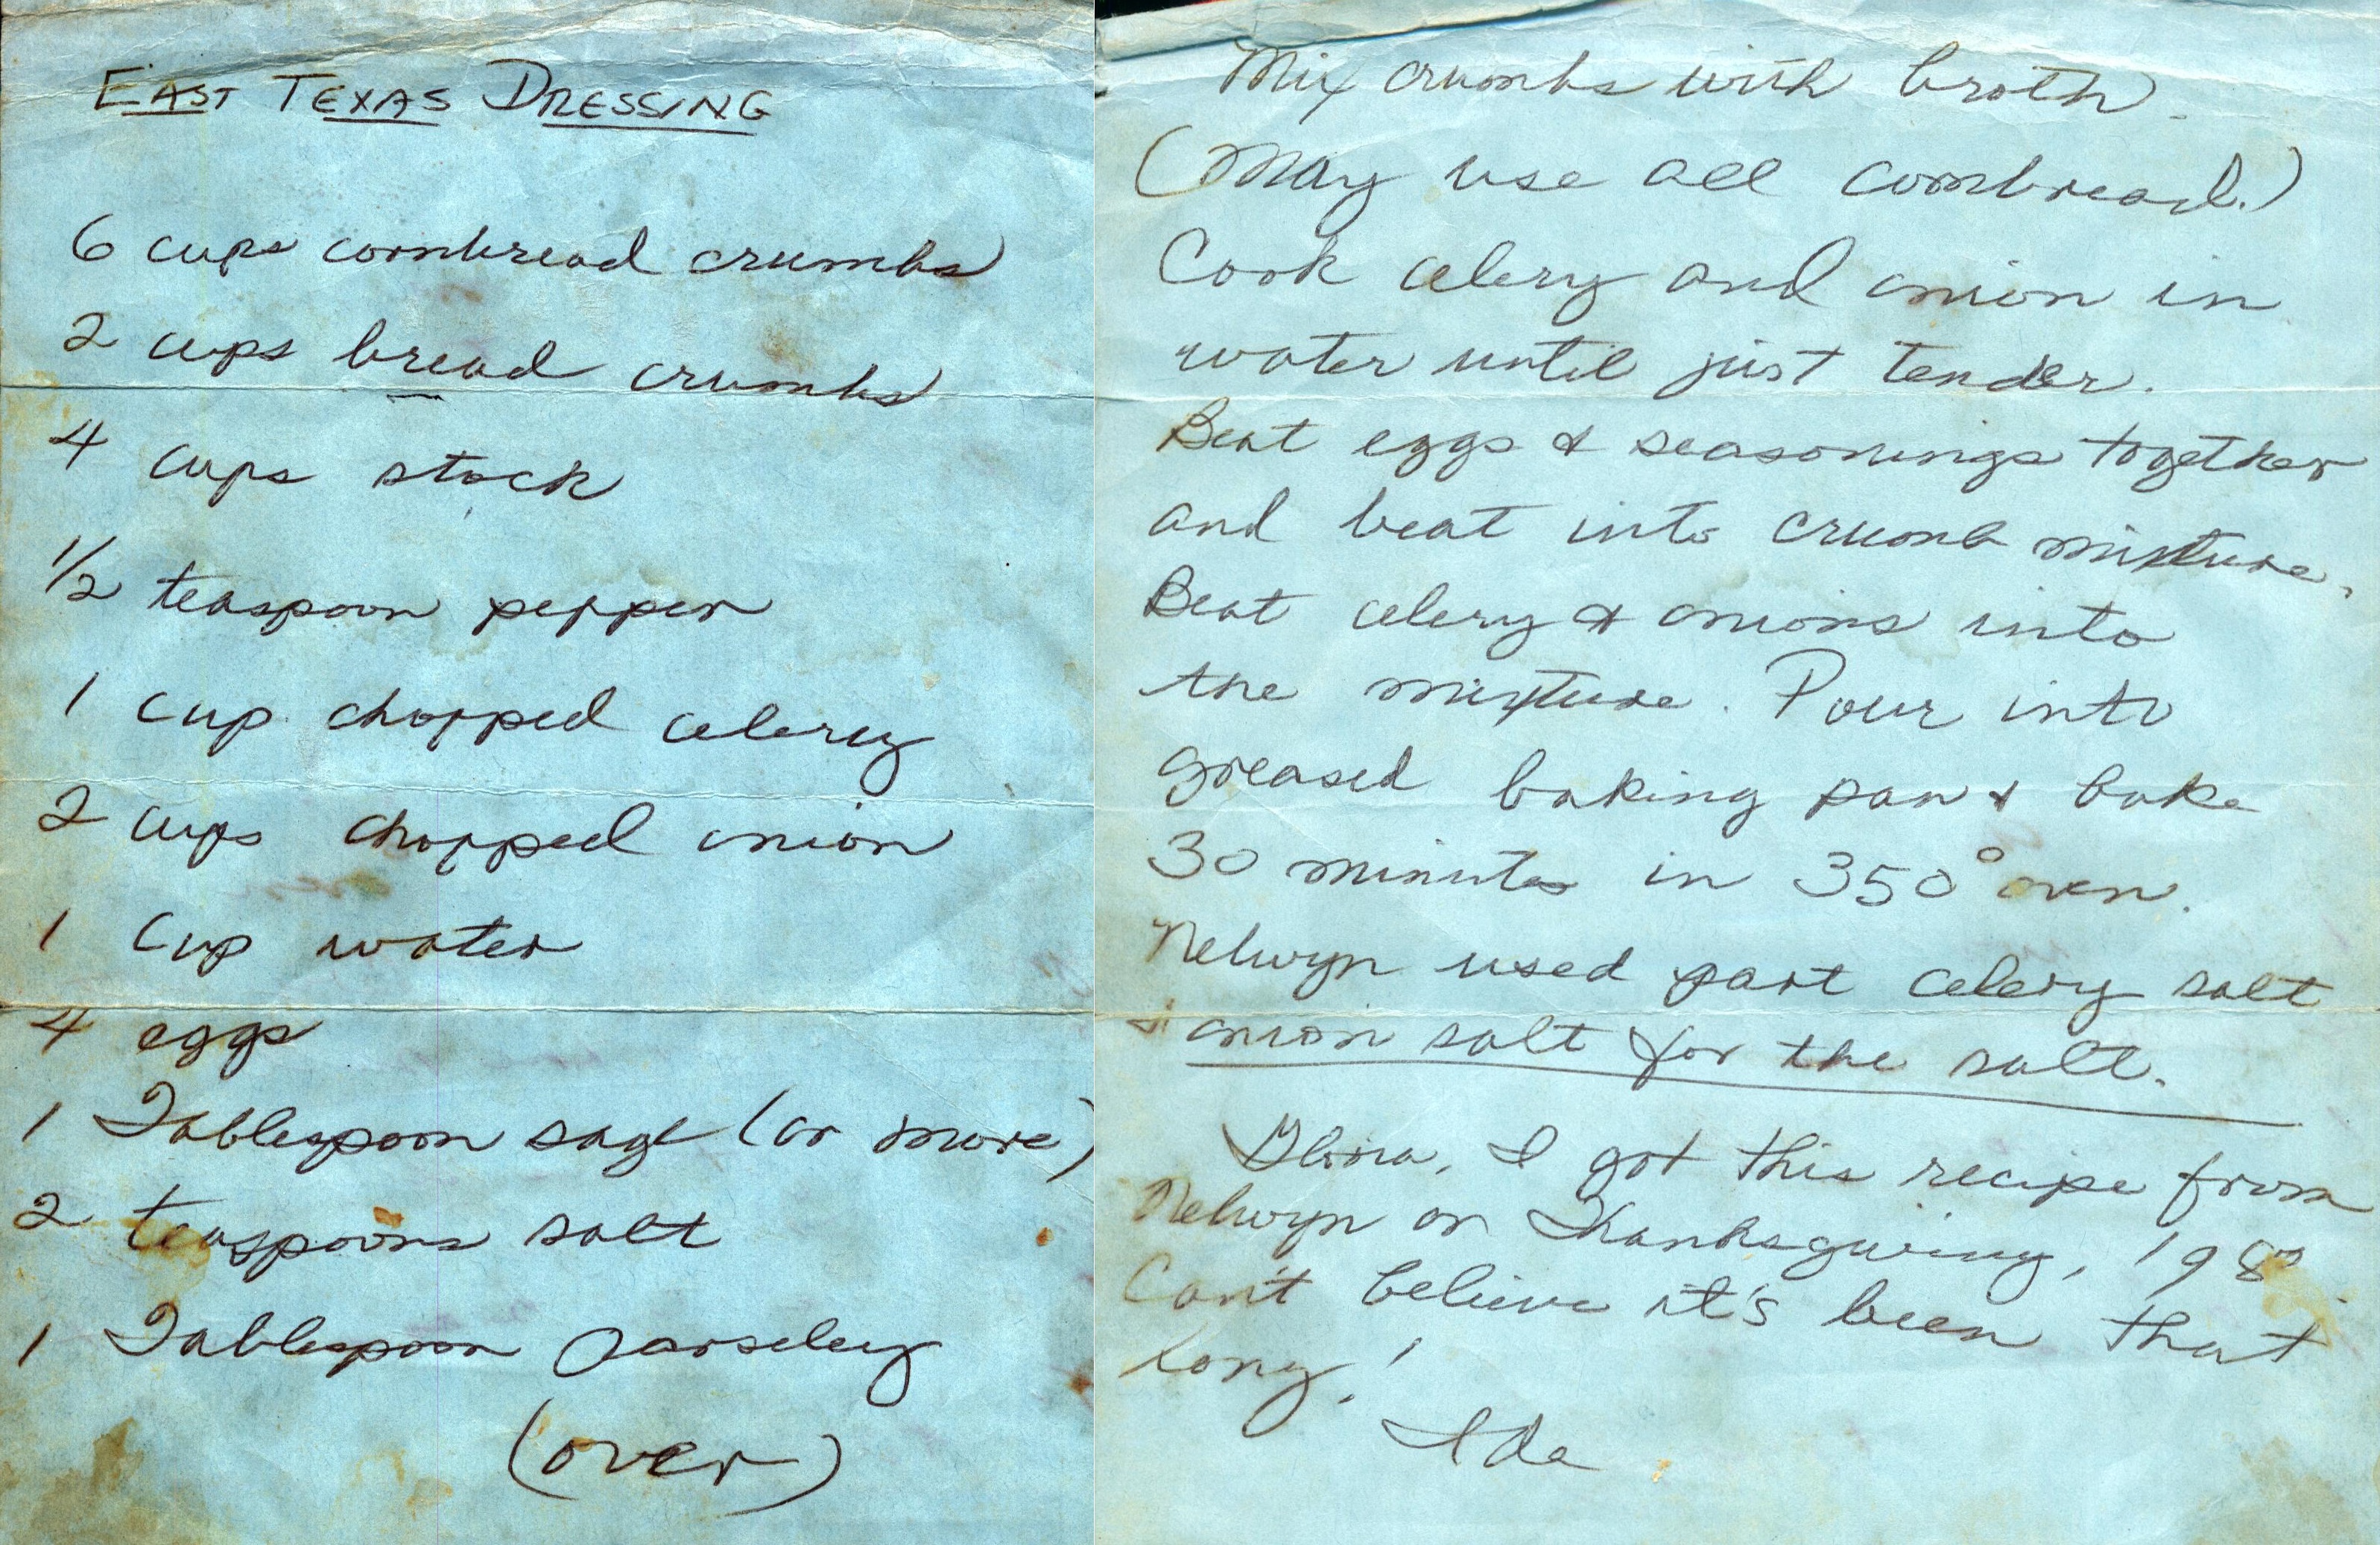 EAST TEXAS DRESSING
6 cups cornbread crumbs
2 cups bread crumbs
4 cups stock
1/2 teaspoon pepper
1 cup chopped celery
2 cups chopped onion
1 cup water
4 eggs
1 Tablespoon sage (or more)
2 teaspoons salt
1 Tablespoon Parseley
(over)
Mix crumbs with broth.
(May use all cornbread.)
Cook celery and onion in
water until just tender.
Beat eggs & seasonings together
and beat into crumb mixture.
Beat celery & onions into
the mixture. Pour into
greased baking pan & bake
30 minutes in 350° oven.
Nelwyn used part celery salt
& onion salt for the salt.
I got this recipe from
Nelwyn on Thanksgiving,
Can't believe it's been that
long!
Ida